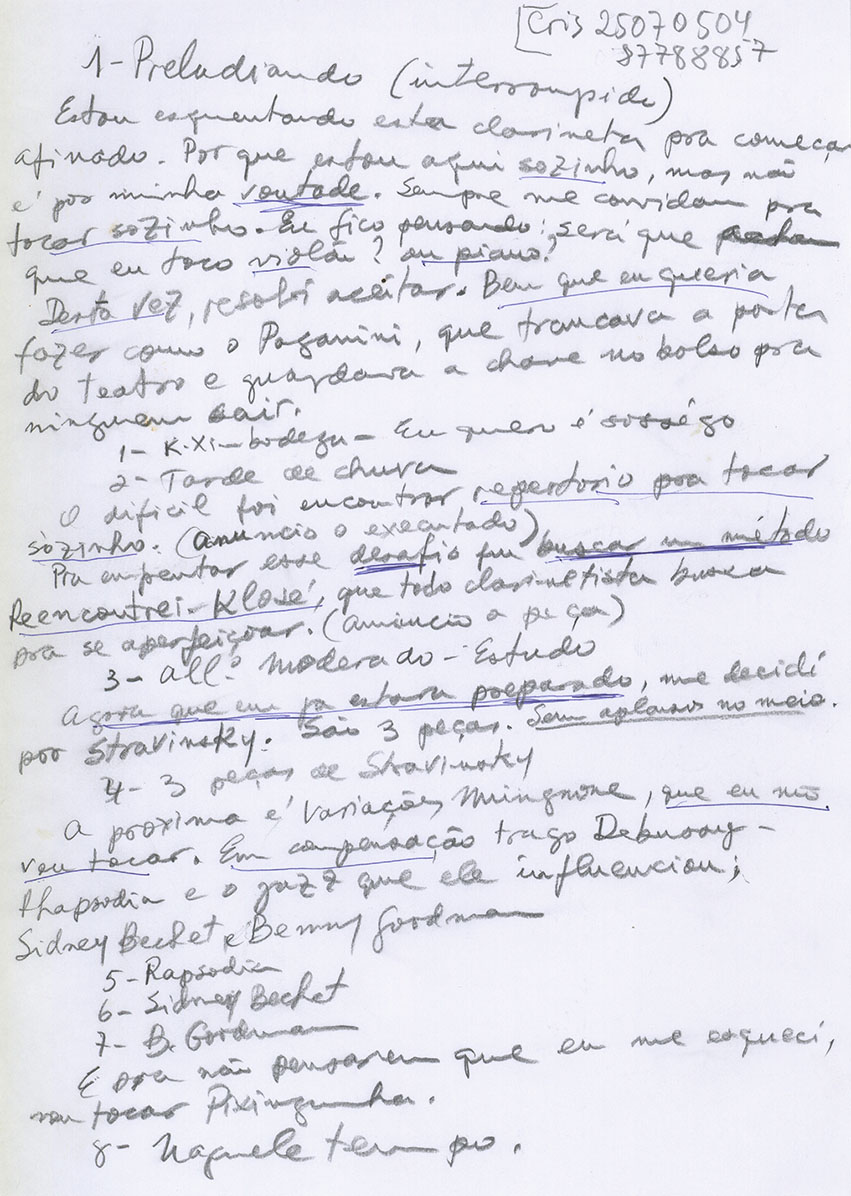 [Cris 25070504
87788857
1 - Preludiando (interrompido)
Estou esquentando esta clarineta pra começar
afinado. Por que estou aqui sozinho, mas não
é por minha vontade. Sempre me convidam pra
tocar sozinho. Eu fico pensando: será que
que eu toco violão? ou piano?
Desta vez, resolvi aceitar. Bem que eu queria
fazer como o Paganini, que trancava a porta
do teatro e guardava a chave no bolso pra
ninguem sair.
1 - K-Xi-bodega - Eu quero é sossêgo
2 - Tarde de chuva
O dificil foi encontrar repertorio pra tocar
sòzinho. (anuncio o executado)
Pra enfrentar esse desafio fui buscar um método
Reencontrei - Klosé, que todo clarinetista busca
pra se aperfeiçoar. (anuncio a peça)
3 - All.º Moderado - Estudo
Agora que eu ja estava preparado, me decidi
por Stravinsky. São 3 peças. Sem aplausos no meio.
4 - 3 peças de Stravinsky
A proxima é Variações Mingnone, que eu não
vou tocar. Em compensação trago Debussy -
Rhapsodia e o jazz que ele influenciou;
Sidney Bechet e Benny Goodman
5 - Rapsodia
6 - Sidney Bechet
7 - B. Goodman
E pra não pensarem que eu me esqueci,
vou tocar Pixinguinha.
8 - Naquele tempo.